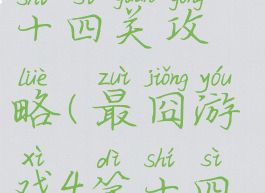 shí sì guān gōng
十四关攻
lüè zuì jiǒng yóu
略(最囧游
xì dì shí sì
戏4第十四